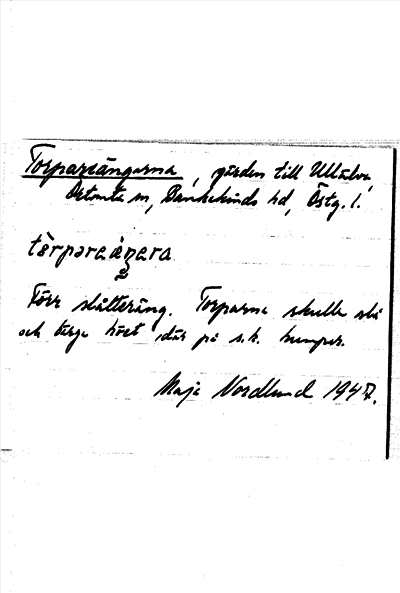 Torpareängarna, gärden till Ullälva,
Östra m, Bankekinds hd, Östg. l.
tòrpareäŋera
2
Förr slåtteräng. Torparna skulle slå
och berga höet där på s.k. humper.
Maja Nordlund 1947.